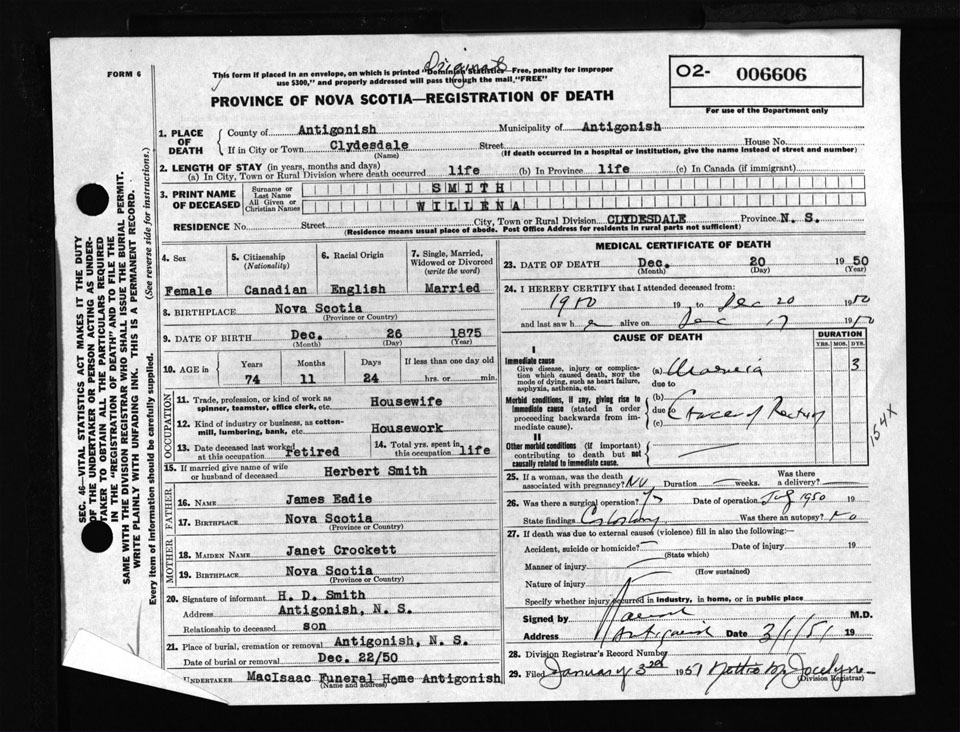 Original
FORM 6
This form if placed in an envelope, on which is printed "Dominion Statistics—Free, penalty for improper
use $300," and properly addressed will pass through the mail, "FREE"
O2- 006606
For use of the Department only
PROVINCE OF NOVA SCOTIA—REGISTRATION OF DEATH
SEC. 46—VITAL STATISTICS ACT MAKES IT THE DUTY
OF THE UNDERTAKER OR PERSON ACTING AS UNDER-
TAKER TO OBTAIN ALL THE PARTICULARS REQUIRED
IN THE "REGISTRATION OF DEATH" AND TO FILE THE
SAME WITH THE DIVISION REGISTRAR WHO SHALL ISSUE THE BURIAL PERMIT.
WRITE PLAINLY WITH UNFADING INK. THIS IS A PERMANENT RECORD.
Every item of information should be carefully supplied. (See reverse side for instructions.)
1. PLACE OF DEATH
County of Antigonish Municipality of Antigonish
If in City or Town Clydesdale Street House No.
(Name) (If death occurred in a hospital or institution, give the name instead of street and number)
2. LENGTH OF STAY (in years, months and days)
(a) In City, Town or Rural Division where death occurred life (b) In Province life (c) In Canada (if immigrant)
3. PRINT NAME OF DECEASED
Surname or Last Name SMITH
All Given or Christian Names WILLENA
RESIDENCE No. Street City, Town or Rural Division CLYDESDALE Province N. S.
(Residence means usual place of abode. Post Office Address for residents in rural parts not sufficient)
4. Sex
Female
5. Citizenship (Nationality)
Canadian
6. Racial Origin
English
7. Single, Married, Widowed or Divorced (write the word)
Married
8. BIRTHPLACE Nova Scotia
(Province or Country)
9. DATE OF BIRTH Dec. 26 1875
(Month) (Day) (Year)
10. AGE in Years Months Days If less than one day old
74 11 24 hrs. or min.
OCCUPATION
11. Trade, profession, or kind of work as
spinner, teamster, office clerk, etc. Housewife
12. Kind of industry or business, as cotton-
mill, lumbering, bank, etc. Housework
13. Date deceased last worked at this occupation retired
14. Total yrs. spent in this occupation life
15. If married give name of wife or husband of deceased Herbert Smith
FATHER
16. NAME James Eadie
17. BIRTHPLACE Nova Scotia
(Province or Country)
MOTHER
18. MAIDEN NAME Janet Crockett
19. BIRTHPLACE Nova Scotia
(Province or Country)
20. Signature of informant H. D. Smith
Address Antigonish, N. S.
Relationship to deceased son
21. Place of burial, cremation or removal Antigonish, N. S.
Date of burial or removal Dec. 22/50
UNDERTAKER MacIsaac Funeral Home Antigonish
(Name and address)
MEDICAL CERTIFICATE OF DEATH
23. DATE OF DEATH Dec. 20 1950
(Month) (Day) (Year)
24. I HEREBY CERTIFY that I attended deceased from:
1950 19 to Dec 20 1950
and last saw h er alive on Dec 17 1950
CAUSE OF DEATH
DURATION
YRS. MOS. DYS.
I
Immediate cause
Give disease, injury or complica-
tion which caused death, NOT the
mode of dying, such as heart failure,
asphyxia, asthenia, etc.
(a) Uraemia 3
due to
Morbid conditions, if any, giving rise to
immediate cause (stated in order
proceeding backwards from im-
mediate cause).
(b)
due to Cancer of Rectum
(c)
154X
II
Other morbid conditions (if important)
contributing to death but not
causally related to immediate cause.
25. If a woman, was the death
associated with pregnancy? No Duration weeks. Was there a delivery?
26. Was there a surgical operation? Yes Date of operation July 1950 19
State findings Colostomy Was there an autopsy? No
27. If death was due to external causes (violence) fill in also the following:—
Accident, suicide or homicide? Date of injury 19
(State which)
Manner of injury
(How sustained)
Nature of injury
Specify whether injury occurred in industry, in home, or in public place
Signed by M.D.
Address Antigonish Date 3/1/51 19
28. Division Registrar's Record Number
29. Filed January 3rd 1951 Jocelyne
(Division Registrar)